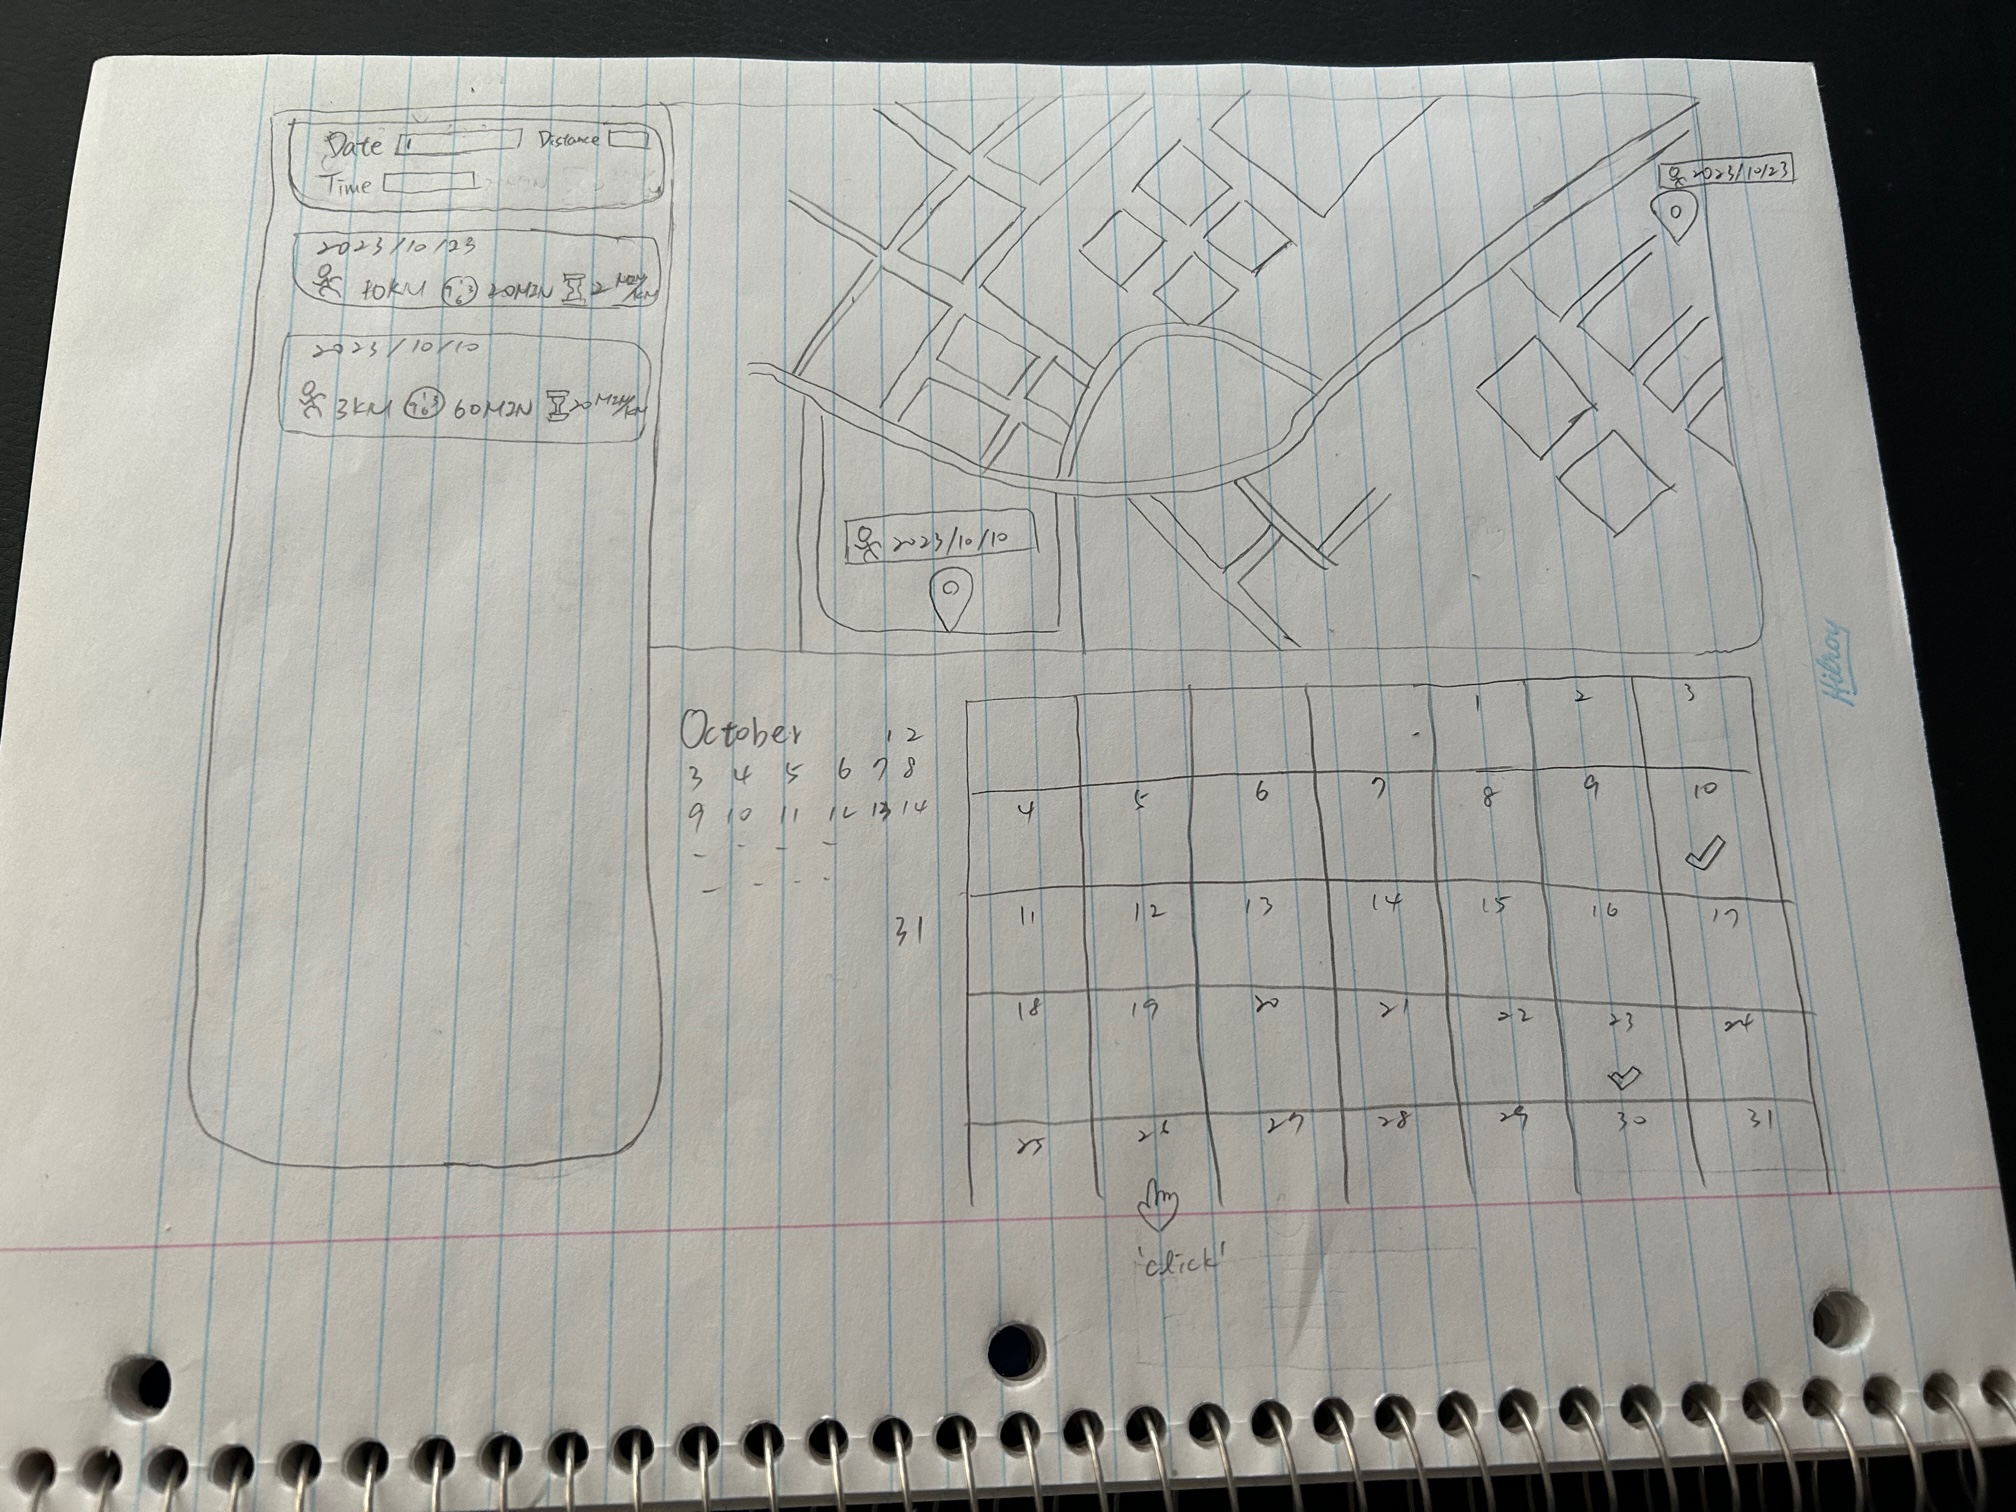 Date Distance
Time
2023/10/23
10KM 20MIN 2 MIN/KM
2023/10/10
3KM 60MIN 20 MIN/KM
2023/10/23
2023/10/10
October 1 2
3 4 5 6 7 8
9 10 11 12 13 14
31
1 2 3
4 5 6 7 8 9 10
11 12 13 14 15 16 17
18 19 20 21 22 23 24
25 26 27 28 29 30 31
'click'
Hilroy